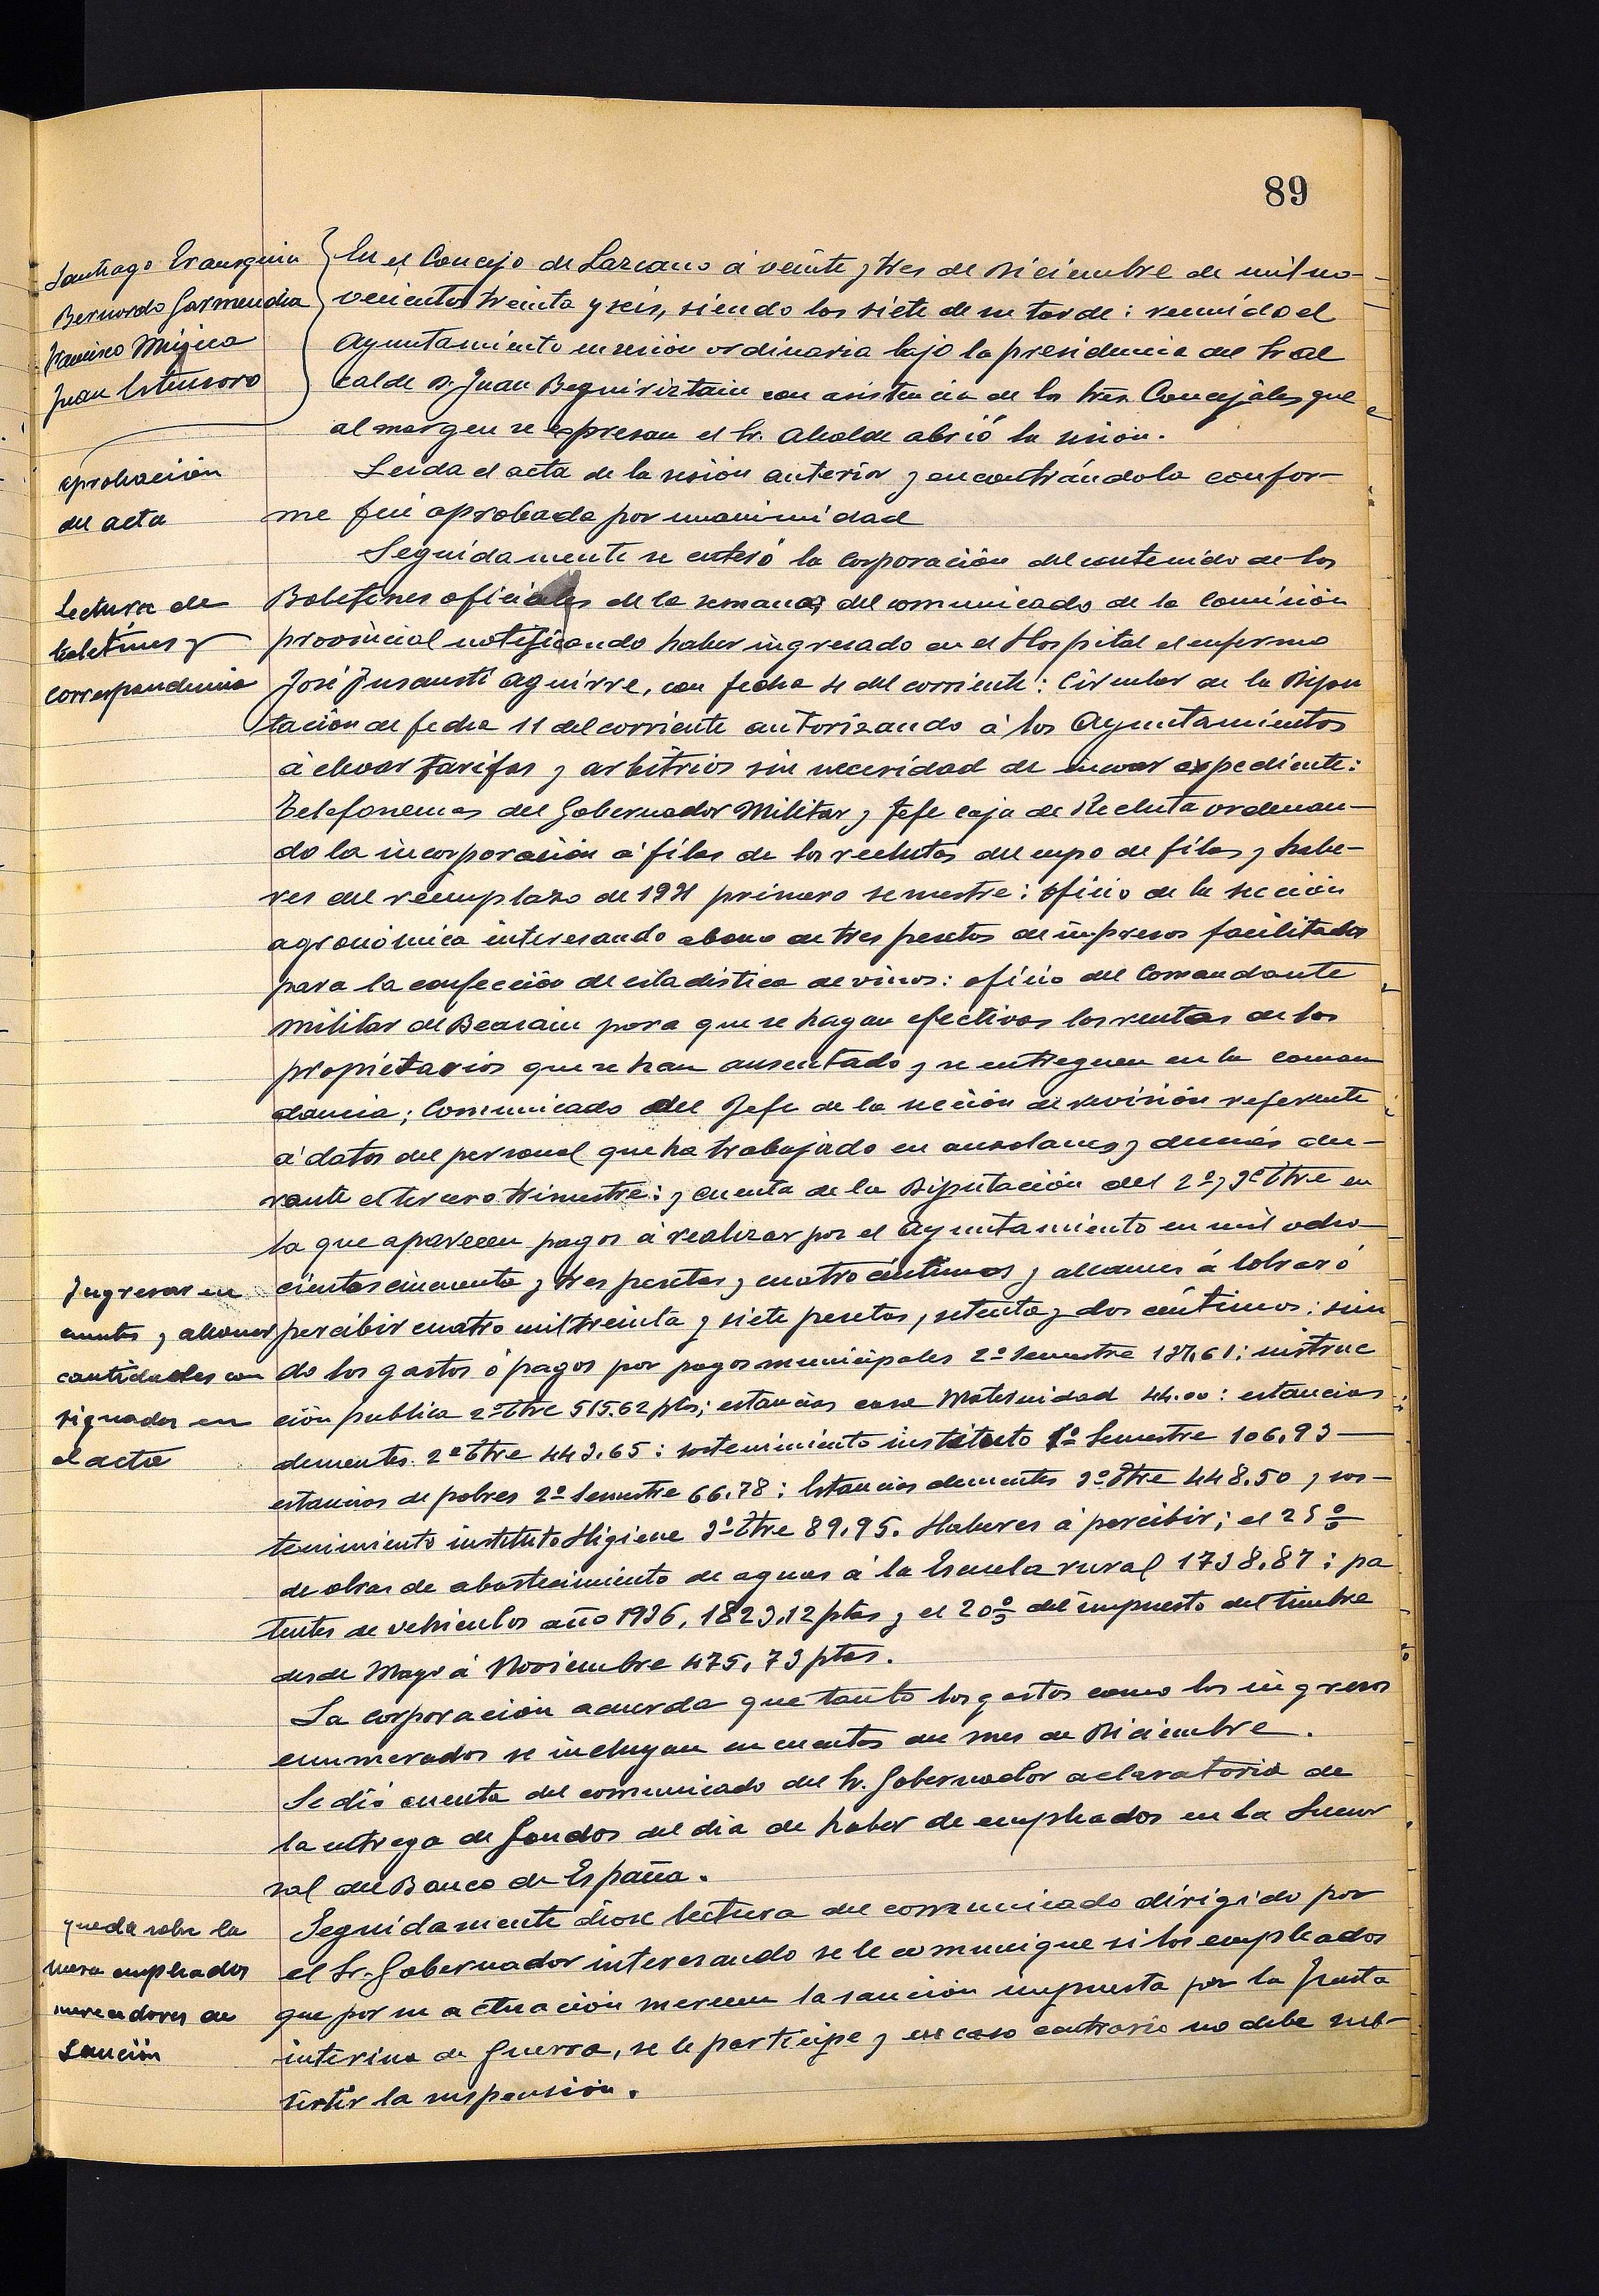 89
Santiago Erausquin
Bernardo Garmendia
Francisco Mújica
Juan Estensoro
En el Concejo de Lazcano á veinte y tres de Diciembre de mil no-
vecientos treinta y seis, siendo las siete de su tarde: reunido el
Ayuntamiento en sesión ordinaria bajo la presidencia del Sr al
calde D. Juan Beguiristain con asistencia de los tres Concejales que
al margen se expresan el Sr. Alcalde abrió la sesión.
aprobación
del acta
Leida el acta de la sesión anterior y encontrándola confor-
me fué aprobada por unanimidad
Lectura de
boletines y
correspondencia
Seguidamente se enteró la Corporación del contenido de los
Boletines oficiales de la semana, del comunicado de la Comisión
provincial notificando haber ingresado en el Hospital el enfermo
José Insausti Aguirre, con fecha 4 del corriente: Circular de la Dipu
tación de fecha 11 del corriente autorizando á los Ayuntamientos
á elevar tarifas y arbitrios sin necesidad de incoar expediente:
Telefonemas del Gobernador Militar y Jefe caja de Recluta ordenan-
do la incorporación á filas de los reclutas del cupo de filas y habe-
res del reemplazo de 1931 primero semestre: oficio de la sección
agronómica interesando abono de tres pesetas de impresos facilitados
para la confección de estadistica de vinos: oficio del Comandante
militar de Beasain para que se hagan efectivas las rentas de los
propietarios que se han ausentado y se entreguen en la coman
dancia; Comunicado del Jefe de la sección de revisión referente
á datos del personal que ha trabajado en y demás du-
rante el tercero trimestre: y cuenta de la Diputación del 2º y 3º tre en
la que aparecen pagos á realizar por el Ayuntamiento en mil ocho
Ingresar en
cuentas y abonar
cantidades con
signadas en
el acta
cientas cincuenta y tres pesetas y cuatro céntimos y alcances á cobrar ó
percibir cuatro mil treinta y siete pesetas, setenta y dos céntimos: sien
do los gastos ó pagos por pagos municipales 2º Semestre 137,61: instruc
ción publica 2º tre 515.62 ptas; estancias casa Maternidad 44.00: estancias
dementes 2º tre 443.65: sostenimiento instituto 1º Semestre 106.93
estancias de pobres 2º Semestre 66.78: Estancias dementes 3º tre 448.50 y sos-
tenimiento instituto Higiene 3º tre 89.95. Haberes á percibir; el 25%
de obras de abastecimiento de aguas á la Escuela rural 1738.87: pa
tentes de vehiculos año 1936, 1823,12 ptas y el 20% del impuesto del timbre
desde Mayo á Noviembre 475,73 ptas.
La corporación acuerda que tanto los gastos como los ingresos
enumerados se incluyan en cuentas del mes de Diciembre.
Se dió cuenta del comunicado del Sr. Gobernador aclaratorio de
la entrega de fondos del dia de haber de empleados en la Sucur
sal del Banco de España.
queda sobre la
mesa empleados
merecedores de
Sanción
Seguidamente dióse lectura del comunicado dirigido por
el Sr. Gobernador interesando se le comunique si los empleados
que por su actuación merecen la sanción impuesta por la Junta
interina de Guerra, se le participe y en caso contrario no debe sub-
sistir la suspensión.